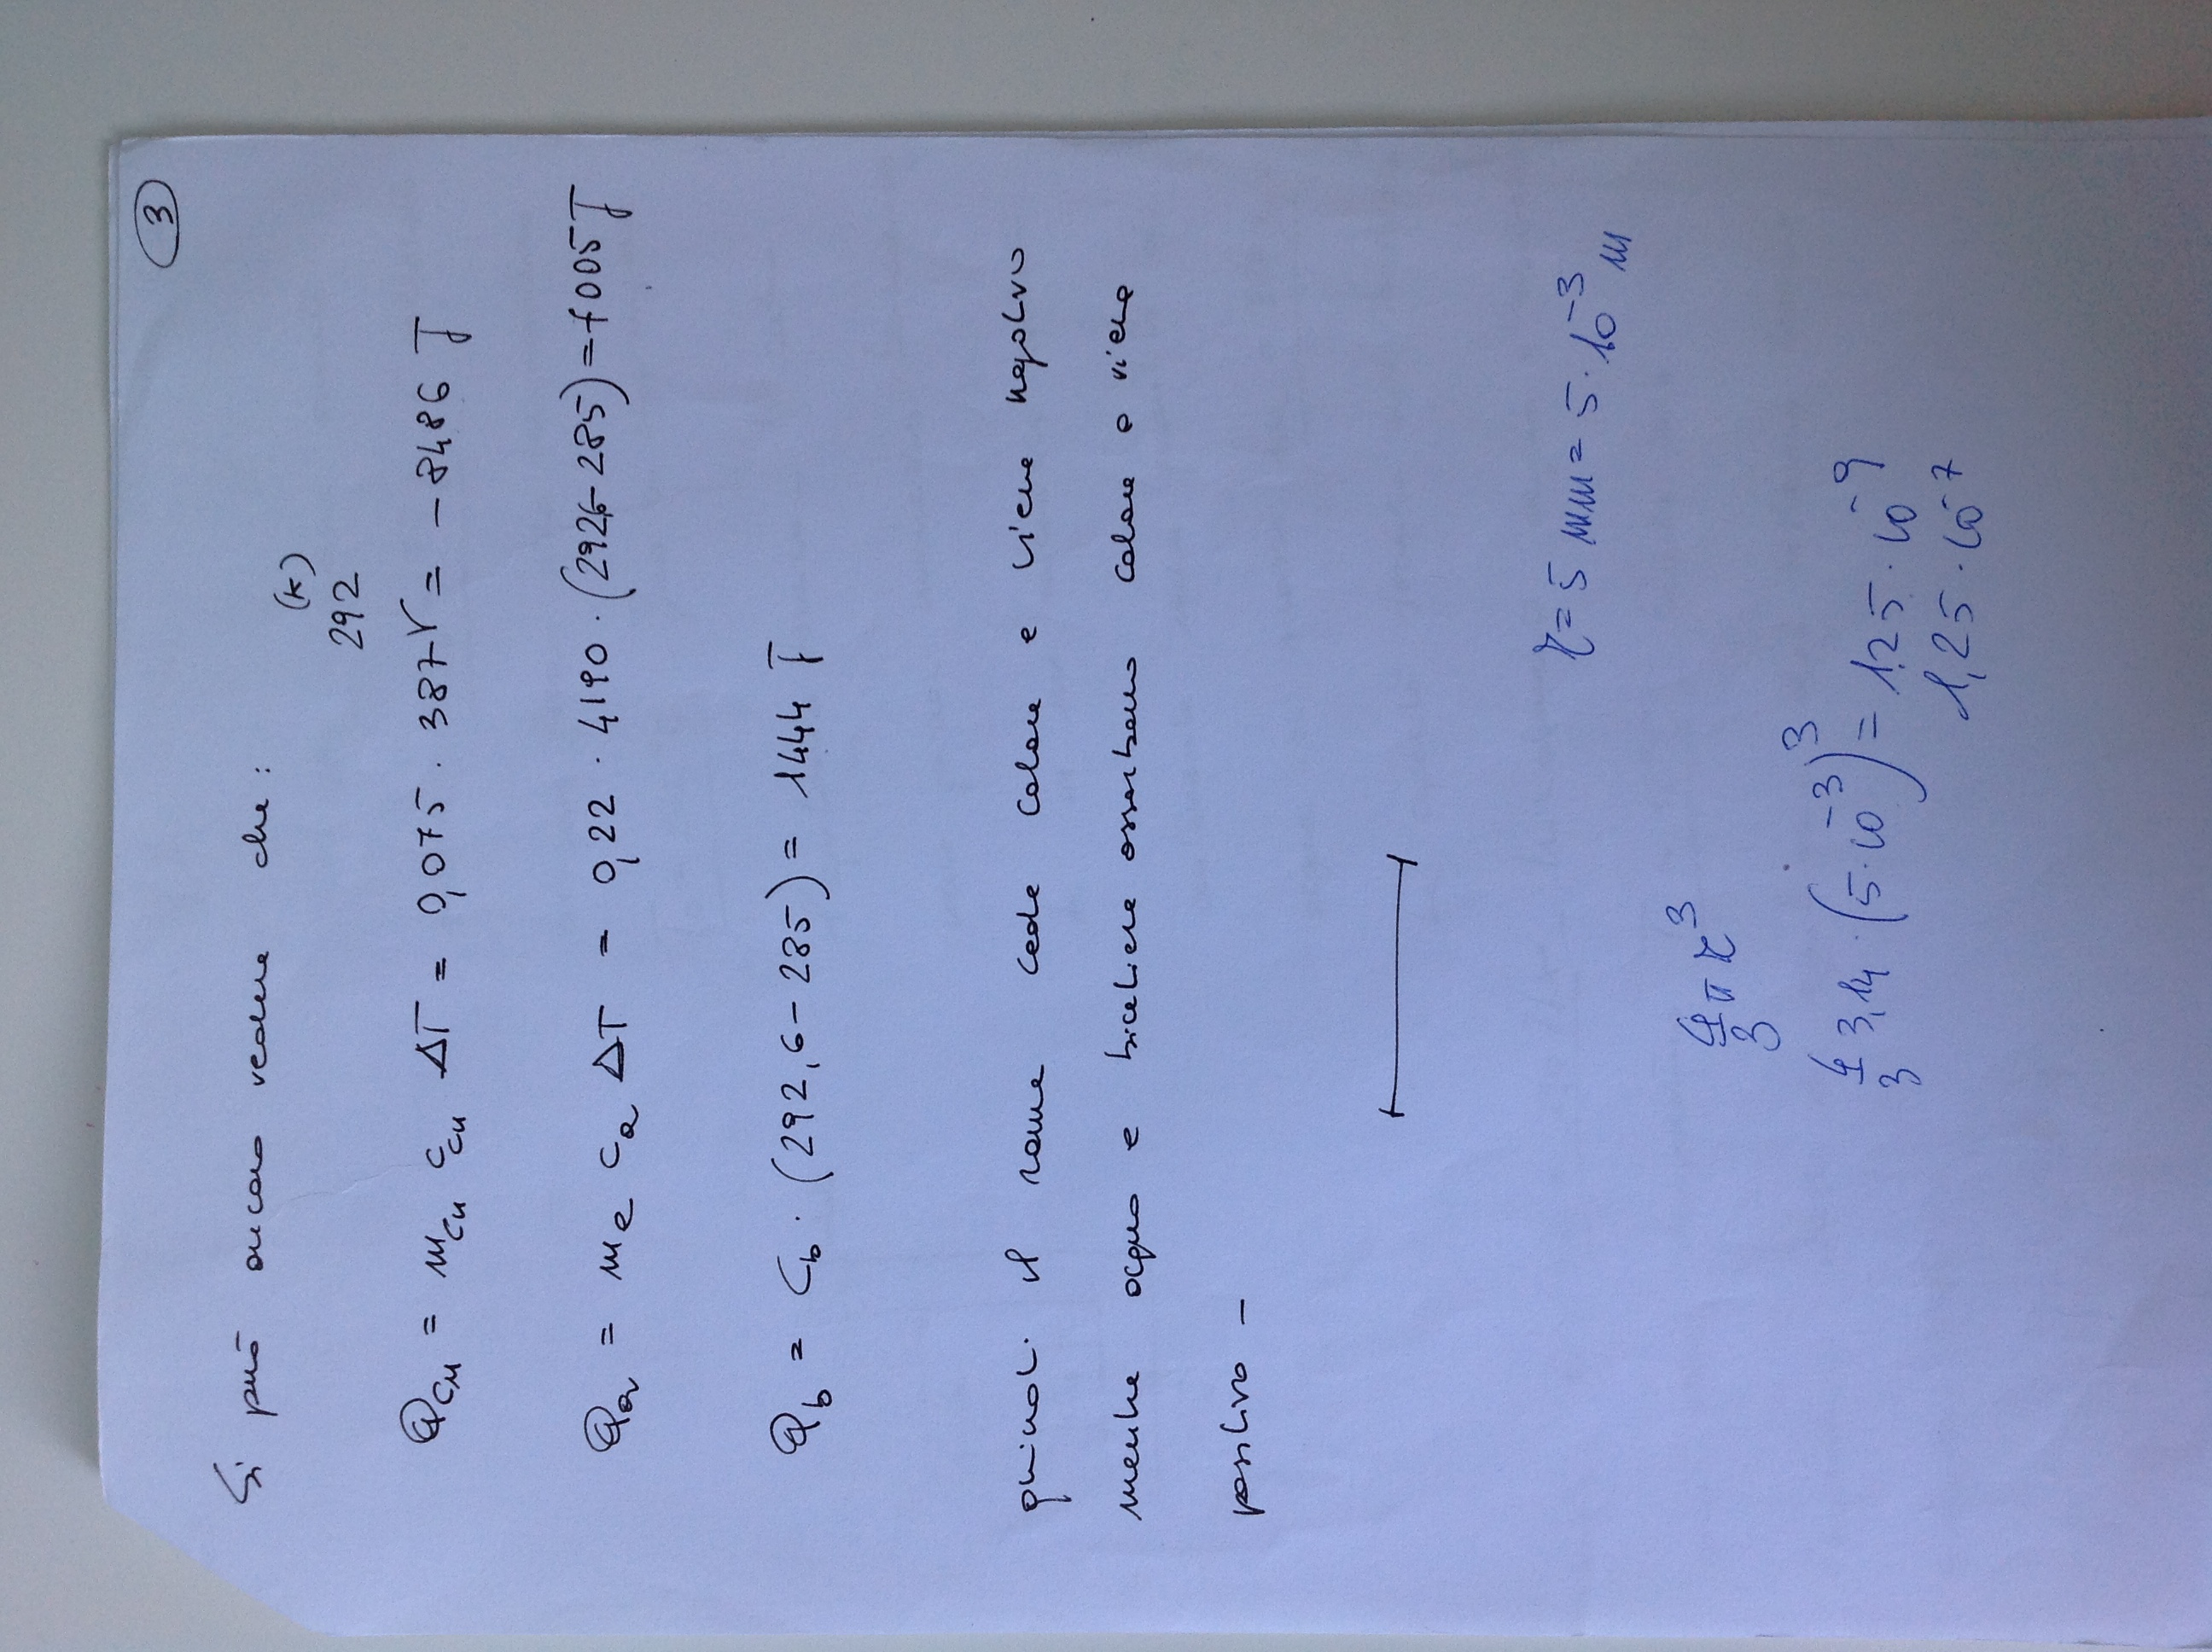 3
Si può ancora vedere che:
(K)
292
Q_Cu = m_Cu c_Cu ΔT = 0,075 · 387 = -8486 J
Q_a = m_a c_a ΔT = 0,22 · 4190 · (292,6 - 285) = 7005 J
Q_b = C_b · (292,6 - 285) = 1444 J
quindi il rame cede calore e viene negativo
mentre acqua e bicchiere assorbono calore e viene
positivo -
r = 5 mm = 5·10⁻³ m
4/3 π r³
4/3 3,14 · (5·10⁻³)³ = 125·10⁻⁹
1,25·10⁻⁷